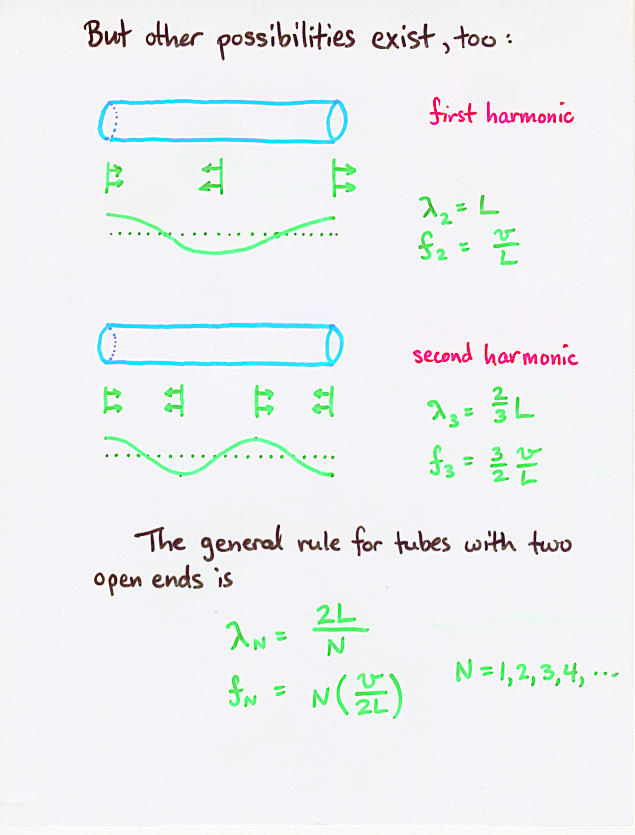 But other possibilities exist, too:
first harmonic
λ₂ = L
f₂ = v/L
second harmonic
λ₃ = 2/3 L
f₃ = 3/2 v/L
The general rule for tubes with two
open ends is
λN = 2L/N
fN = N(v/2L)
N = 1, 2, 3, 4, ...